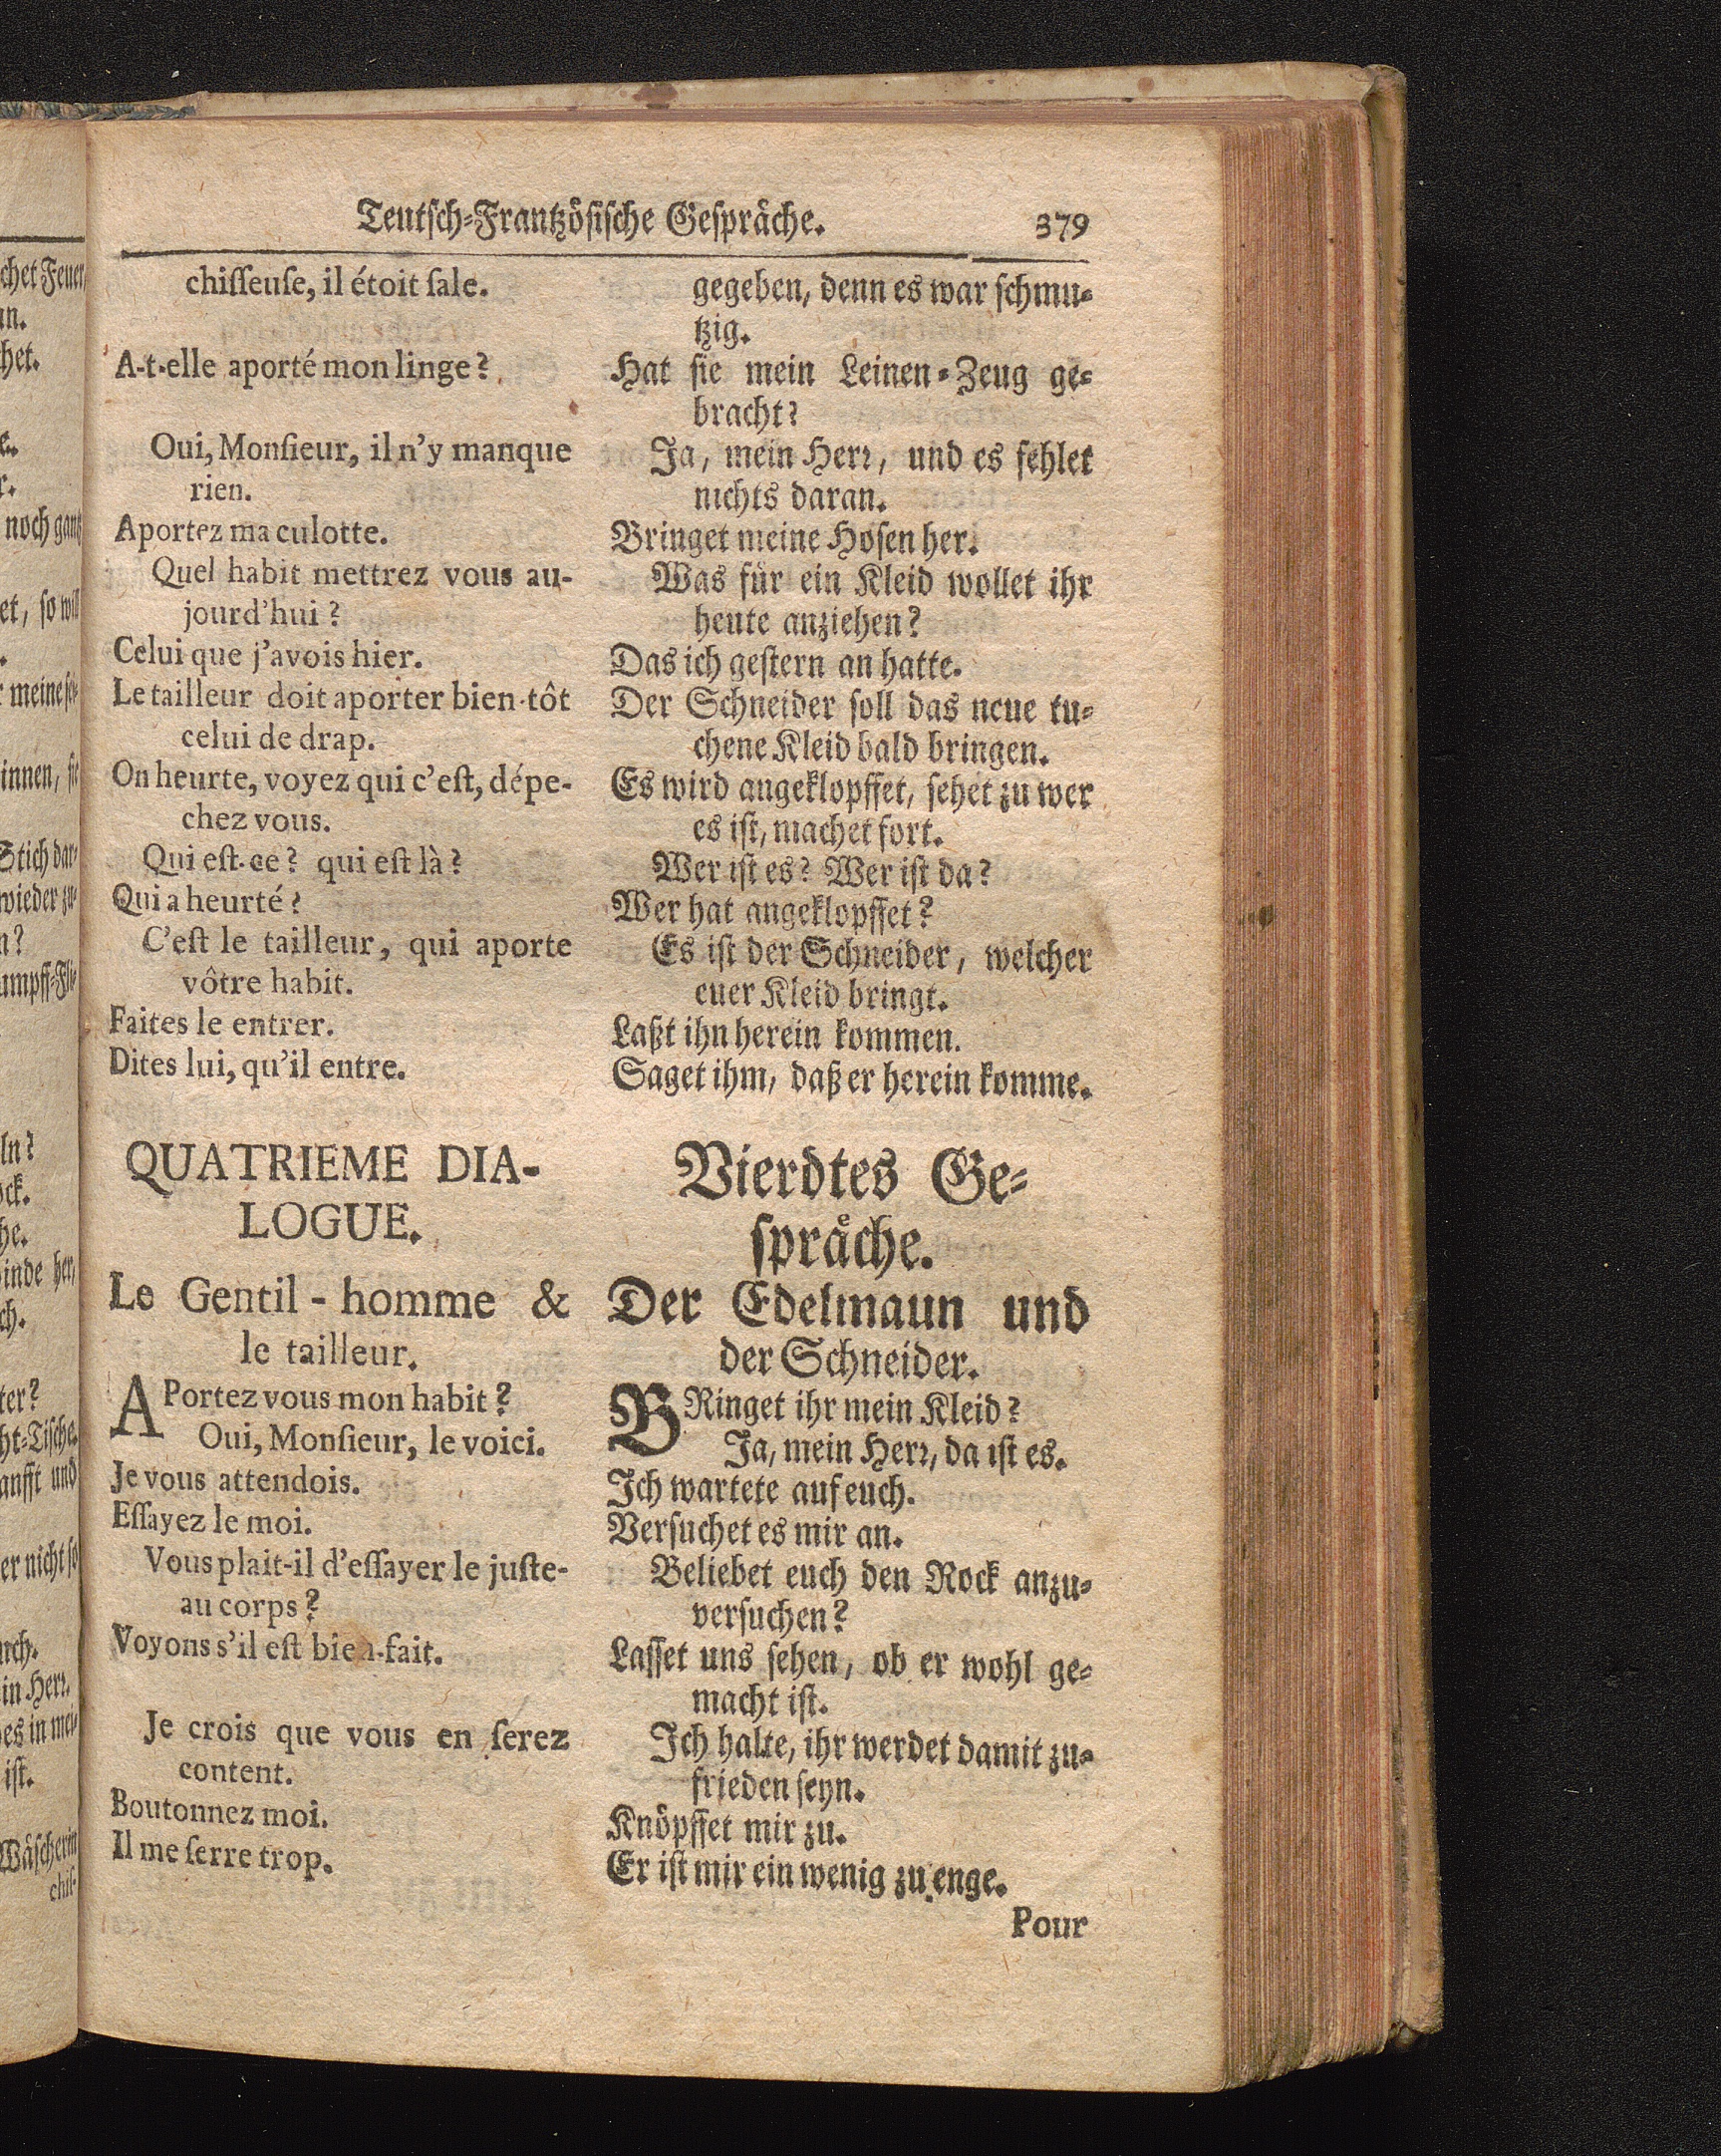 Teutſch-Frantzöſiſche Geſpräche. 379
chiſſeuſe, il étoit ſale.
A-t-elle aporté mon linge?
Oui, Monſieur, il n'y manque
rien.
Aportez ma culotte.
Quel habit mettrez vous au-
jourd'hui?
Celui que j'avois hier.
Le tailleur doit aporter bien-tôt
celui de drap.
On heurte, voyez qui c'eſt, dépe-
chez vous.
Qui eſt-ce? qui eſt là?
Qui a heurté?
C'eſt le tailleur, qui aporte
vôtre habit.
Faites le entrer.
Dites lui, qu'il entre.
QUATRIEME DIA-
LOGUE.
Le Gentil-homme &
le tailleur.
APortez vous mon habit?
Oui, Monſieur, le voici.
Je vous attendois.
Eſſayez le moi.
Vous plait-il d'eſſayer le juſte-
au corps?
Voyons s'il eſt bien-fait.
Je crois que vous en ſerez
content.
Boutonnez moi.
Il me ſerre trop.
gegeben, denn es war ſchmu-
tzig.
Hat ſie mein Leinen-Zeug ge-
bracht?
Ja, mein Herr, und es fehlet
nichts daran.
Bringet meine Hoſen her.
Was für ein Kleid wollet ihr
heute anziehen?
Das ich geſtern an hatte.
Der Schneider ſoll das neue tu-
chene Kleid bald bringen.
Es wird angeklopffet, ſehet zu wer
es iſt, machet fort.
Wer iſt es? Wer iſt da?
Wer hat angeklopffet?
Es iſt der Schneider, welcher
euer Kleid bringt.
Laßt ihn herein kommen.
Saget ihm, daß er herein komme.
Vierdtes Ge-
ſpräche.
Der Edelmaun und
der Schneider.
BRinget ihr mein Kleid?
Ja, mein Herr, da iſt es.
Ich wartete auf euch.
Verſuchet es mir an.
Beliebet euch den Rock anzu-
verſuchen?
Laſſet uns ſehen, ob er wohl ge-
macht iſt.
Ich halte, ihr werdet damit zu-
frieden ſeyn.
Knöpffet mir zu.
Er iſt mir ein wenig zu enge.
Pour